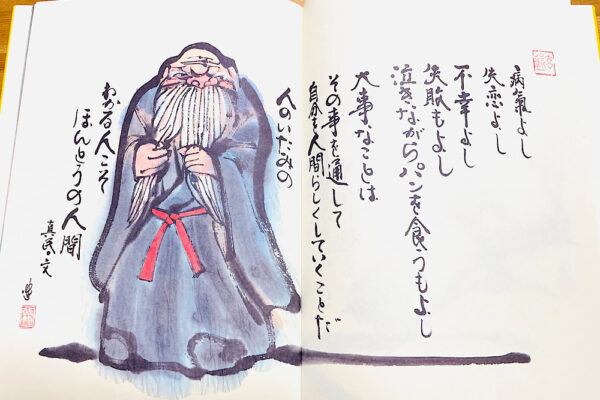 病氣よし
失恋よし
不幸よし
失敗もよし
泣きながらパンを食うもよし
大事なことは
その事を通して
自分を人間らしくしていくことだ
人のいたみの
わかる人こそ
ほんとうの人間
真民・文